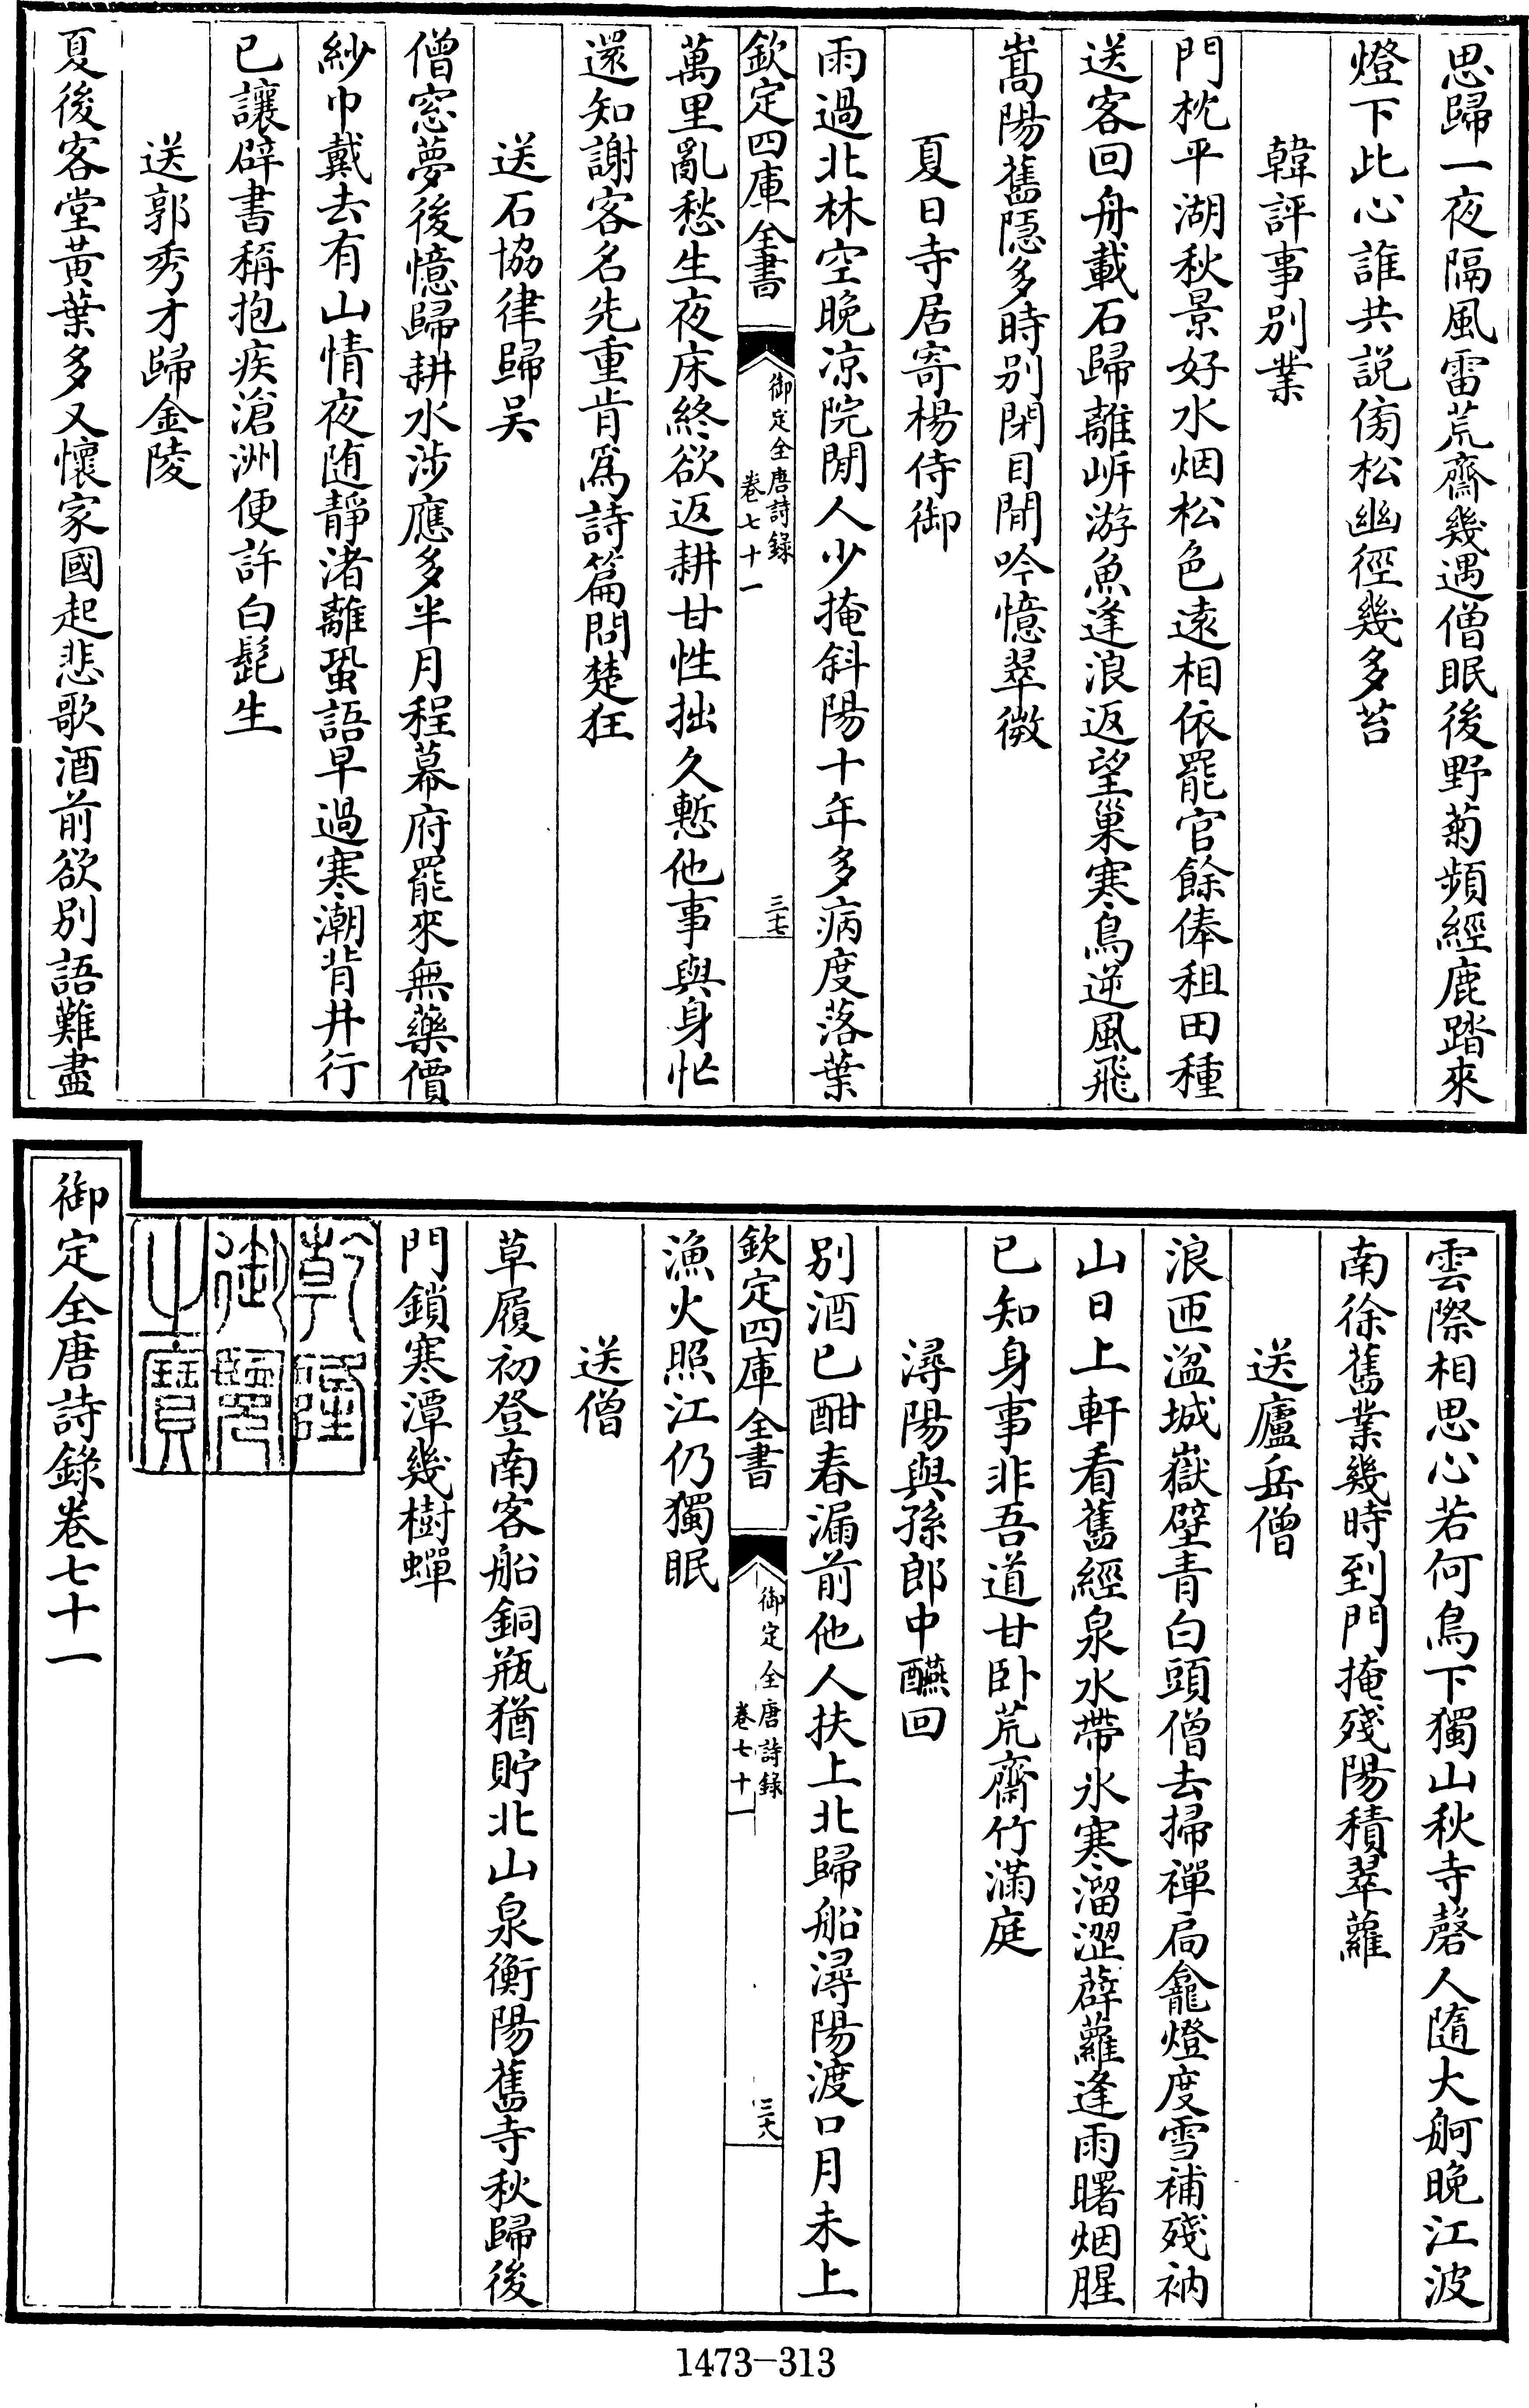 思歸一夜隔風雷荒齋幾遇僧眠後野菊頻經鹿踏來
燈下此心誰共説傍松幽徑幾多苔
韓評事别業
門枕平湖秋景好水烟松色遠相依罷官餘俸租田種
送客回舟載石歸離岍游魚逢浪返望巢寒鳥逆風飛
嵩陽舊隱多時别閉目閒吟憶翠微
夏日寺居寄楊侍御
雨過北林空晚凉院閒人少掩斜陽十年多病度落葉
欽定四庫全書
御定全唐詩錄
卷七十一
三七
萬里亂愁生夜床終欲返耕甘性拙久慙他事與身忙
還知謝客名先重肯爲詩篇問楚狂
送石協律歸吳
僧窓夢後憶歸耕水涉應多半月程幕府罷來無藥價
紗巾戴去有山情夜随靜渚離蛩語早過寒潮背井行
已讓辟書稱抱疾滄洲便許白髭生
送郭秀才歸金陵
夏後客堂黃葉多又懷家國起悲歌酒前欲别語難盡
雲際相思心若何鳥下獨山秋寺磬人隨大舸晚江波
南徐舊業幾時到門掩殘陽積翠蘿
送廬岳僧
浪匝湓城嶽壁青白頭僧去掃禪扃龕燈度雪補殘衲
山日上軒看舊經泉水帶氷寒溜澀薜蘿逢雨曙烟腥
已知身事非吾道甘卧荒齋竹滿庭
潯陽與孫郎中醼回
别酒已酣春漏前他人扶上北歸船潯陽渡口月未上
欽定四庫全書
御定全唐詩錄
卷七十一
三六
漁火照江仍獨眠
送僧
草履初登南客船銅瓶猶貯北山泉衡陽舊寺秋歸後
門鎖寒潭幾樹蟬
乾隆
御覽
之寳
御定全唐詩錄卷七十一
1473-313